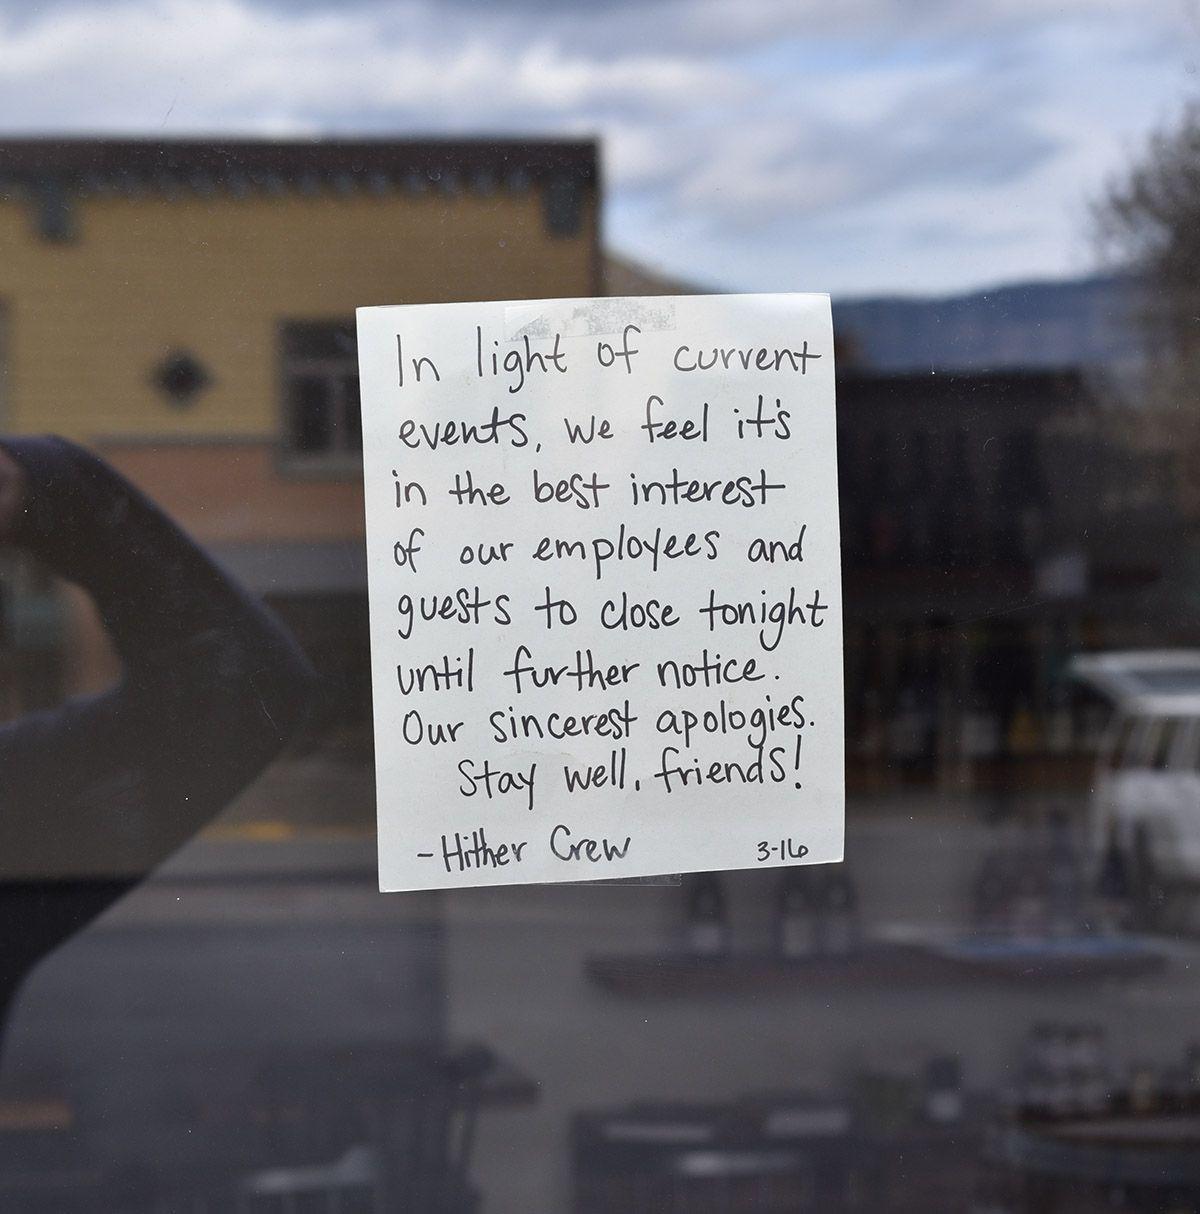 In light of current
events, we feel it's
in the best interest
of our employees and
guests to close tonight
until further notice.
Our sincerest apologies.
Stay well, friends!
- Hither Crew 3-16